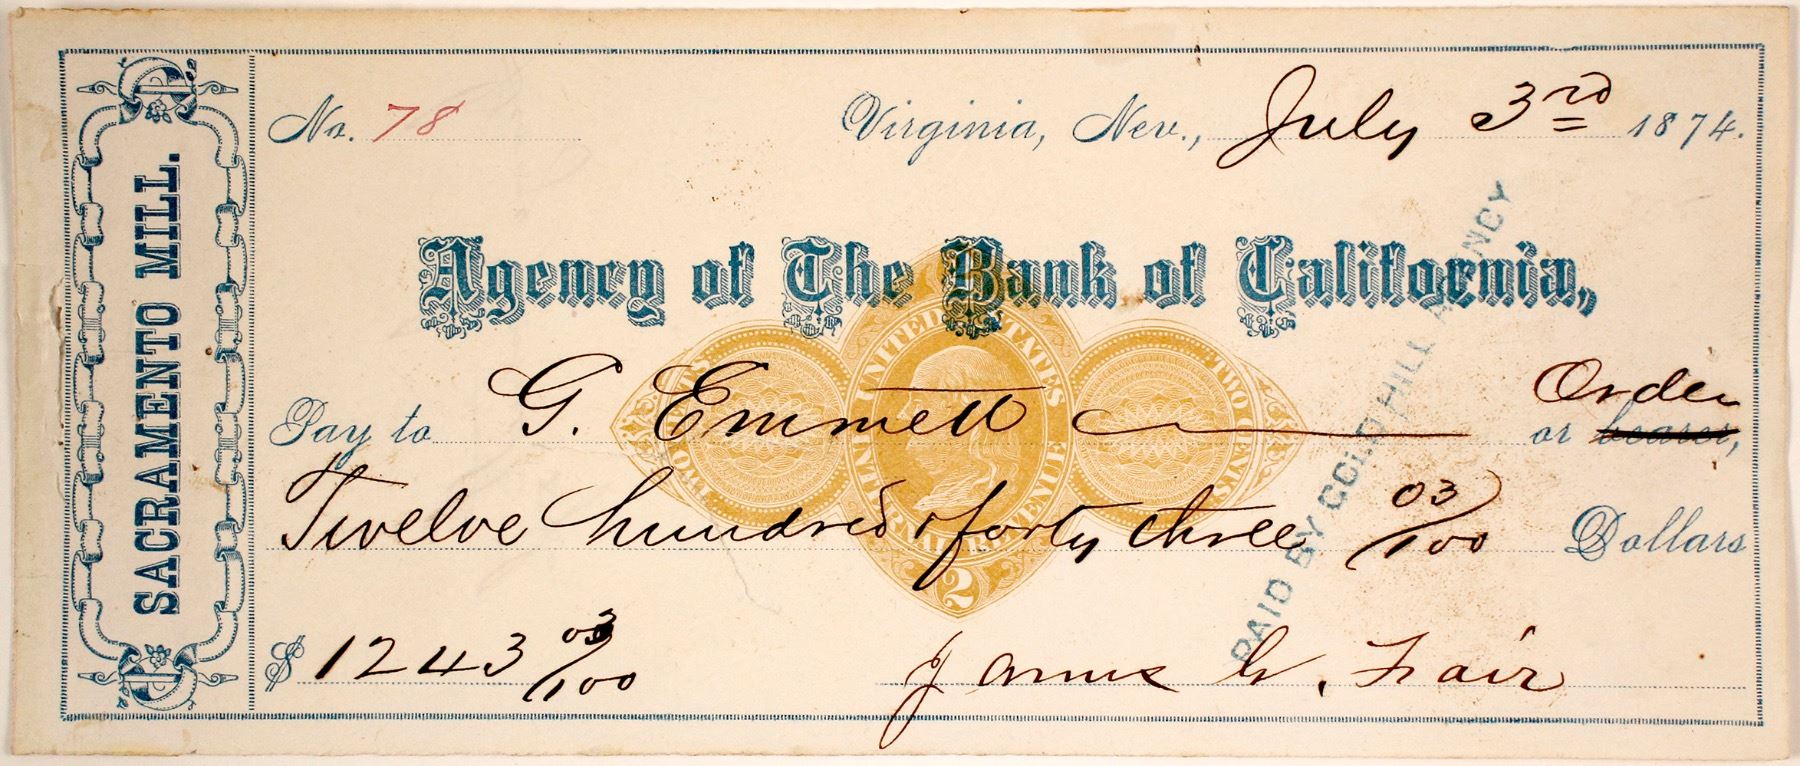 SACRAMENTO MILL.
No. 78 Virginia, Nev., July 3rd 1874.
Agency of The Bank of California,
Pay to G. Emmett Order
or bearer,
Twelve hundred & forty three 03/100 Dollars
$ 1243 03/100
James G. Fair
UNITED STATES
INTERNAL REVENUE
TWO CENTS
TWO CENTS
2
PAID BY GOLD HILL AGENCY